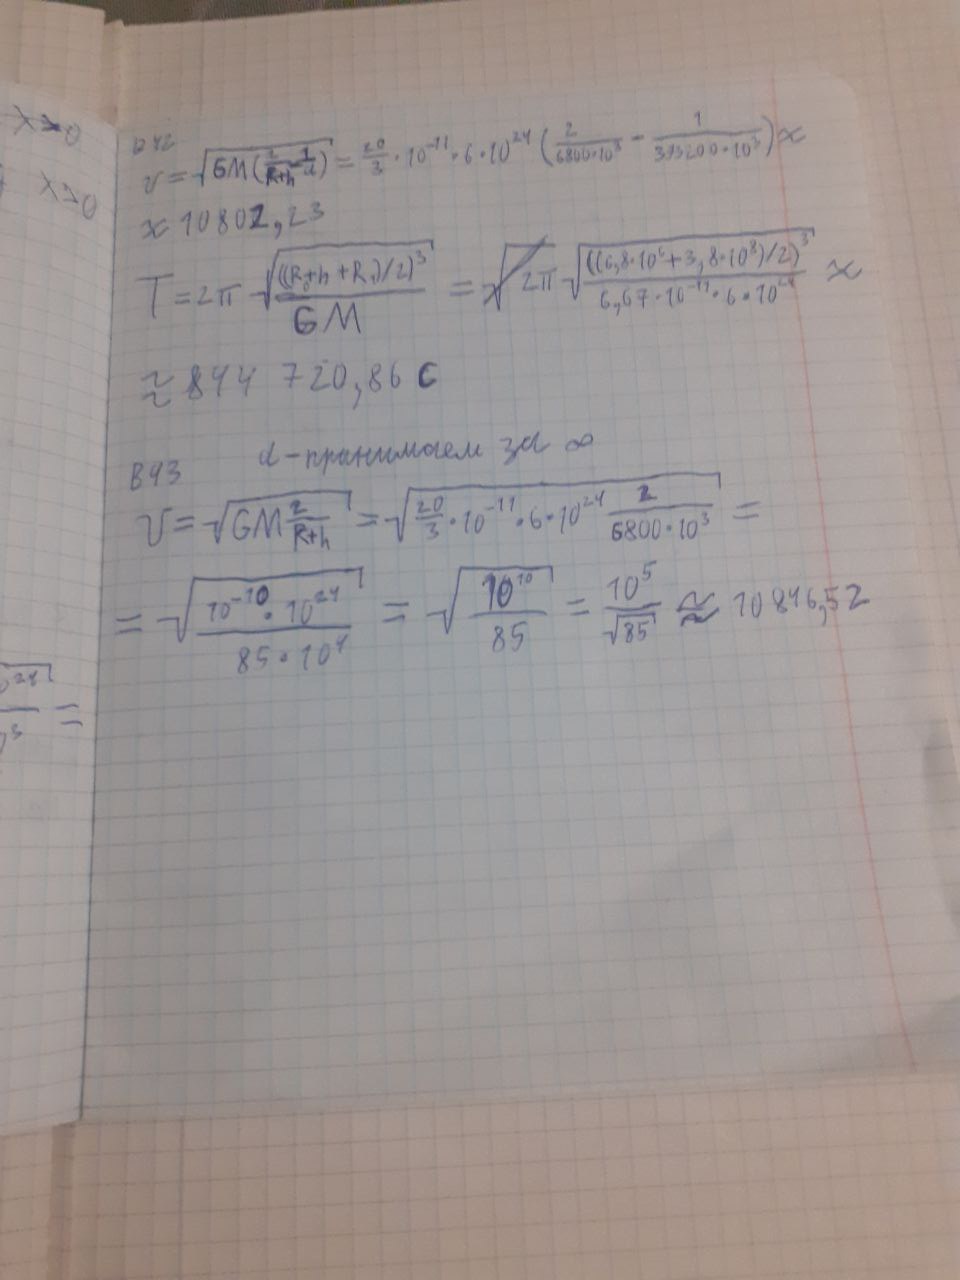 x>0
x>0
B42
v=√(GM(2/(R+h) - 1/d)) = 20/3 · 10^-11 · 6 · 10^24 (2/(6800·10^3) - 1/(393200·10^3)) ≈
≈ 10802,23
T = 2π √(((R+h+R)/2)^3/(GM)) = 2π √(((6,8·10^6+3,8·10^8)/2)^3/(6,67·10^-11·6·10^24)) ≈
≈ 844 720,86 с
В43 d-принимаем за ∞
v = √(GM 2/(R+h)) = √(20/3 · 10^-11 · 6 · 10^24 2/(6800·10^3)) =
= √((10^-10 · 10^24)/(85·10^4)) = √(10^10/85) = 10^5/√85 ≈ 10846,52
=